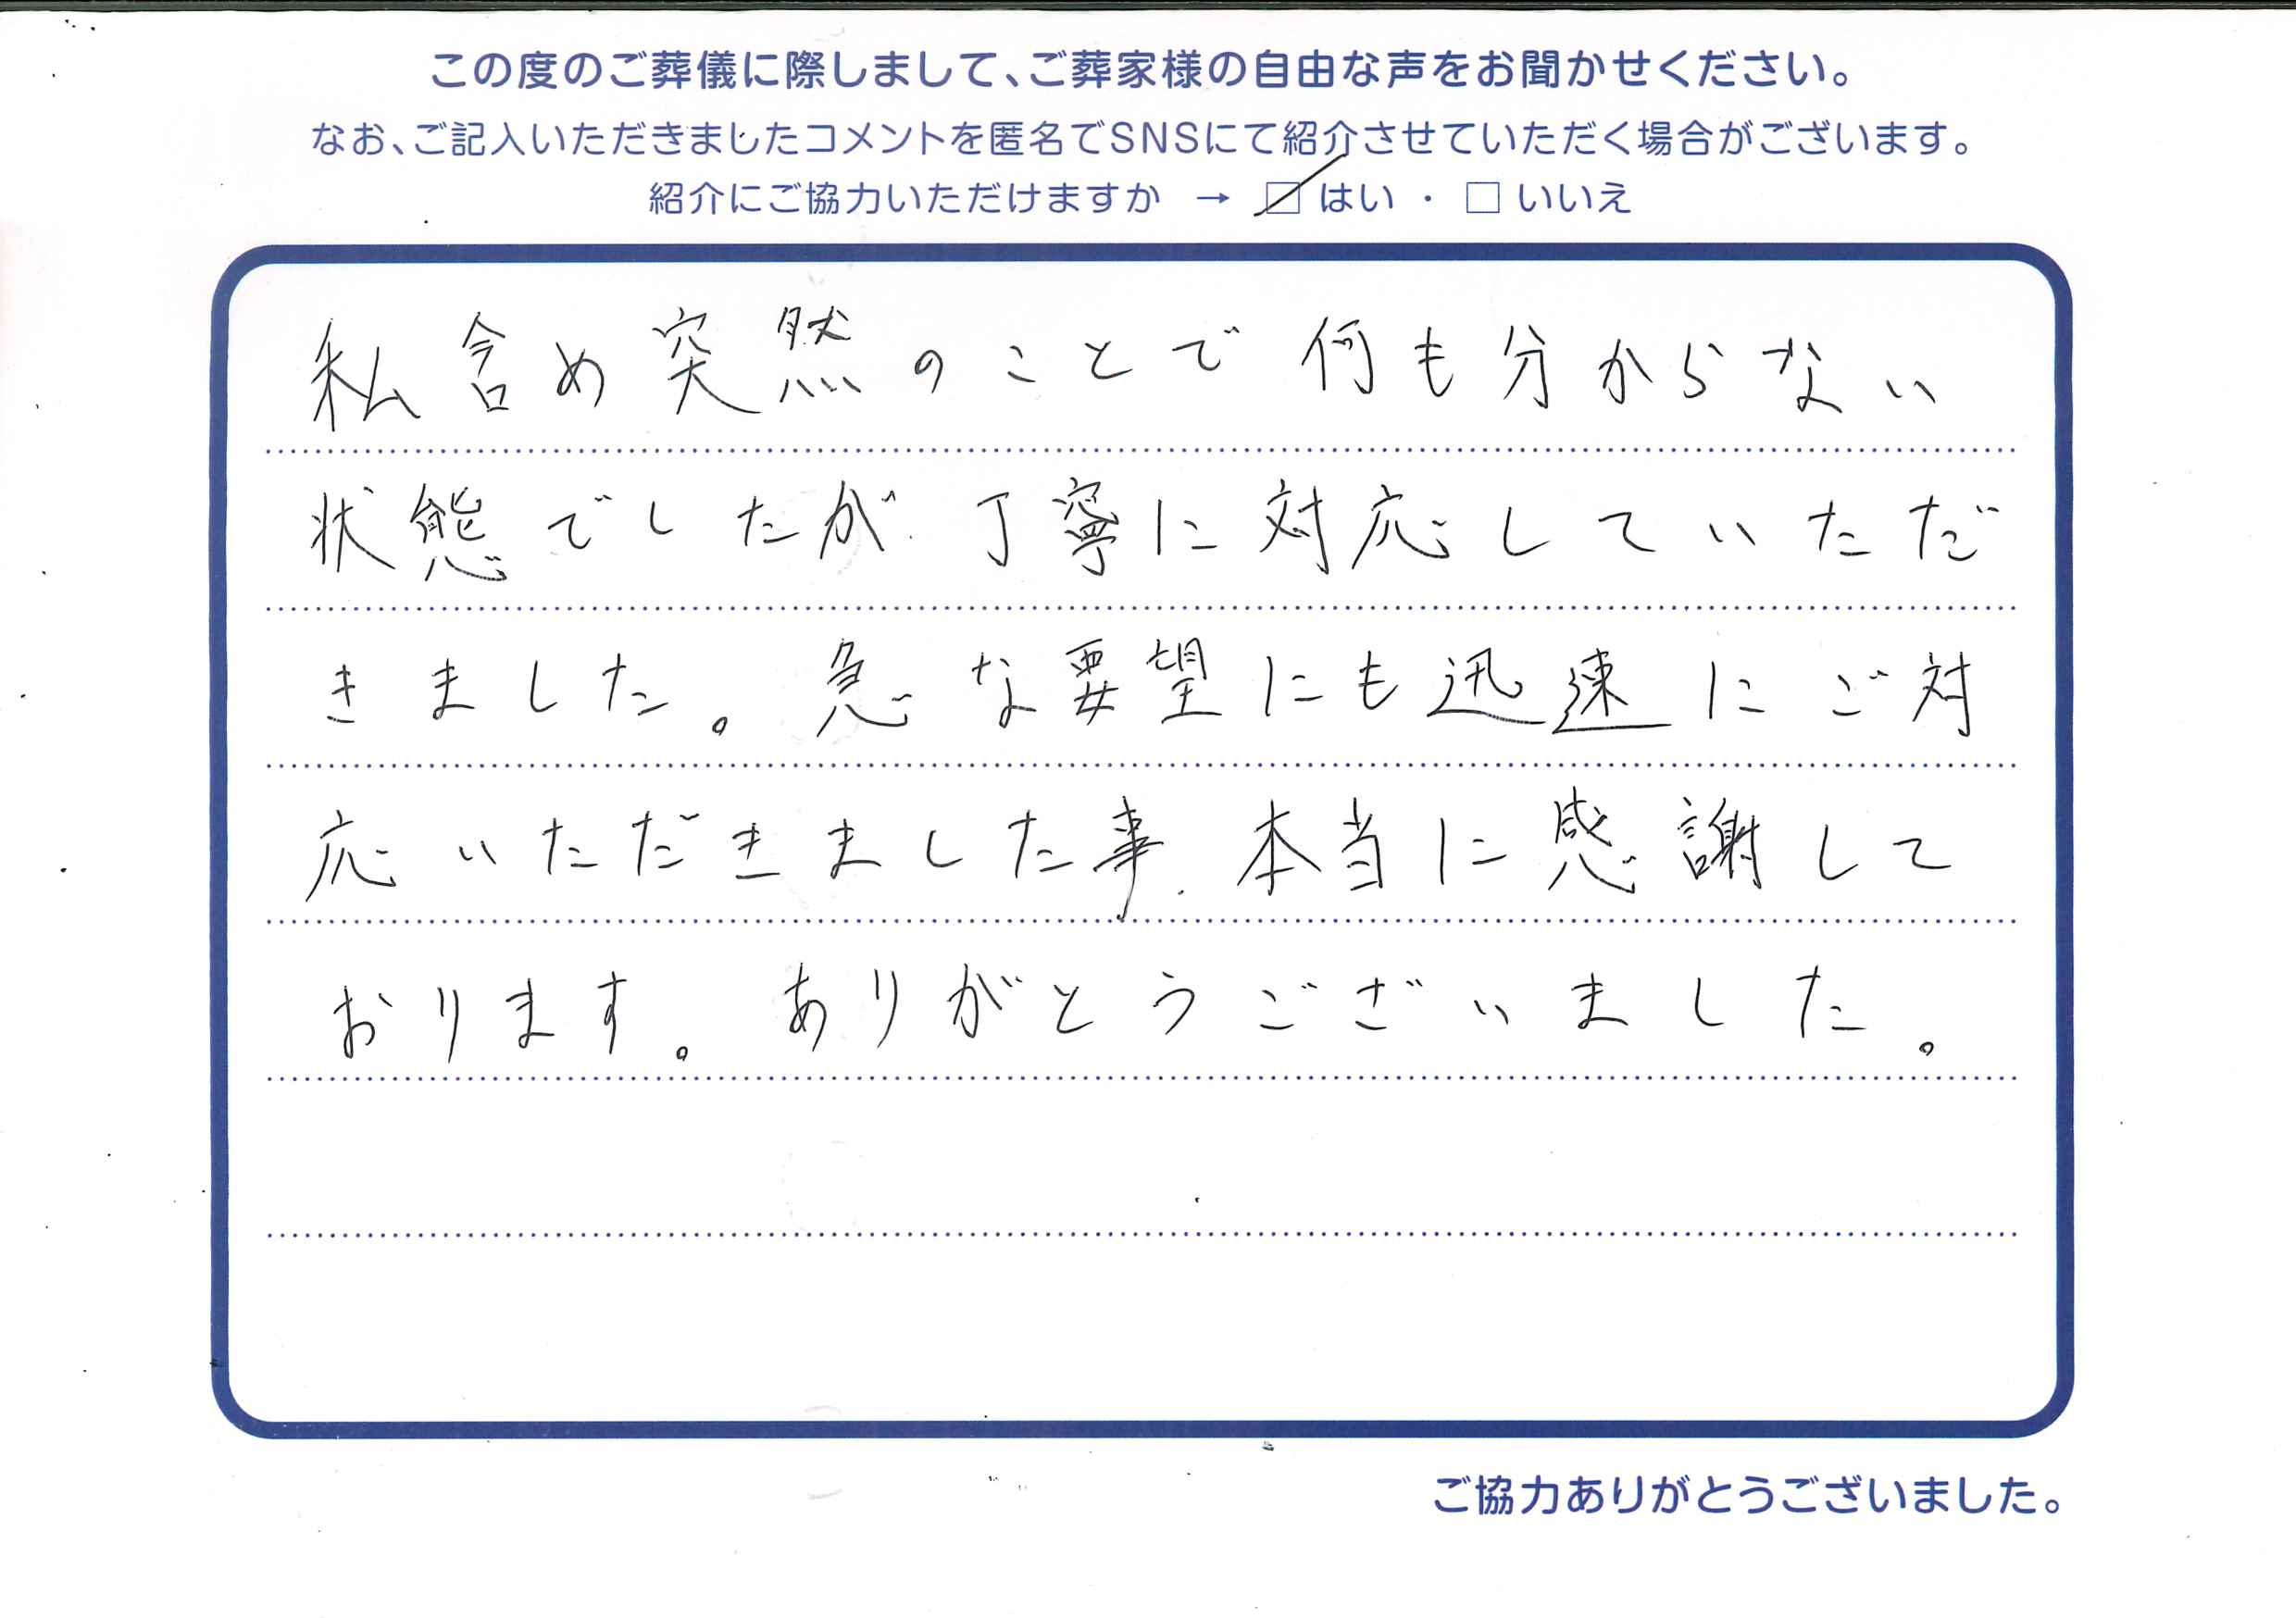 この度のご葬儀に際しまして、ご葬家様の自由な声をお聞かせください。
なお、ご記入いただきましたコメントを匿名でSNSにて紹介させていただく場合がございます。
紹介にご協力いただけますか → ☑ はい ・ □ いいえ
私含め突然のことで何も分からない
状態でしたが、丁寧に対応していただ
きました。急な要望にも迅速にご対
応いただきました事、本当に感謝して
おります。ありがとうございました。
ご協力ありがとうございました。